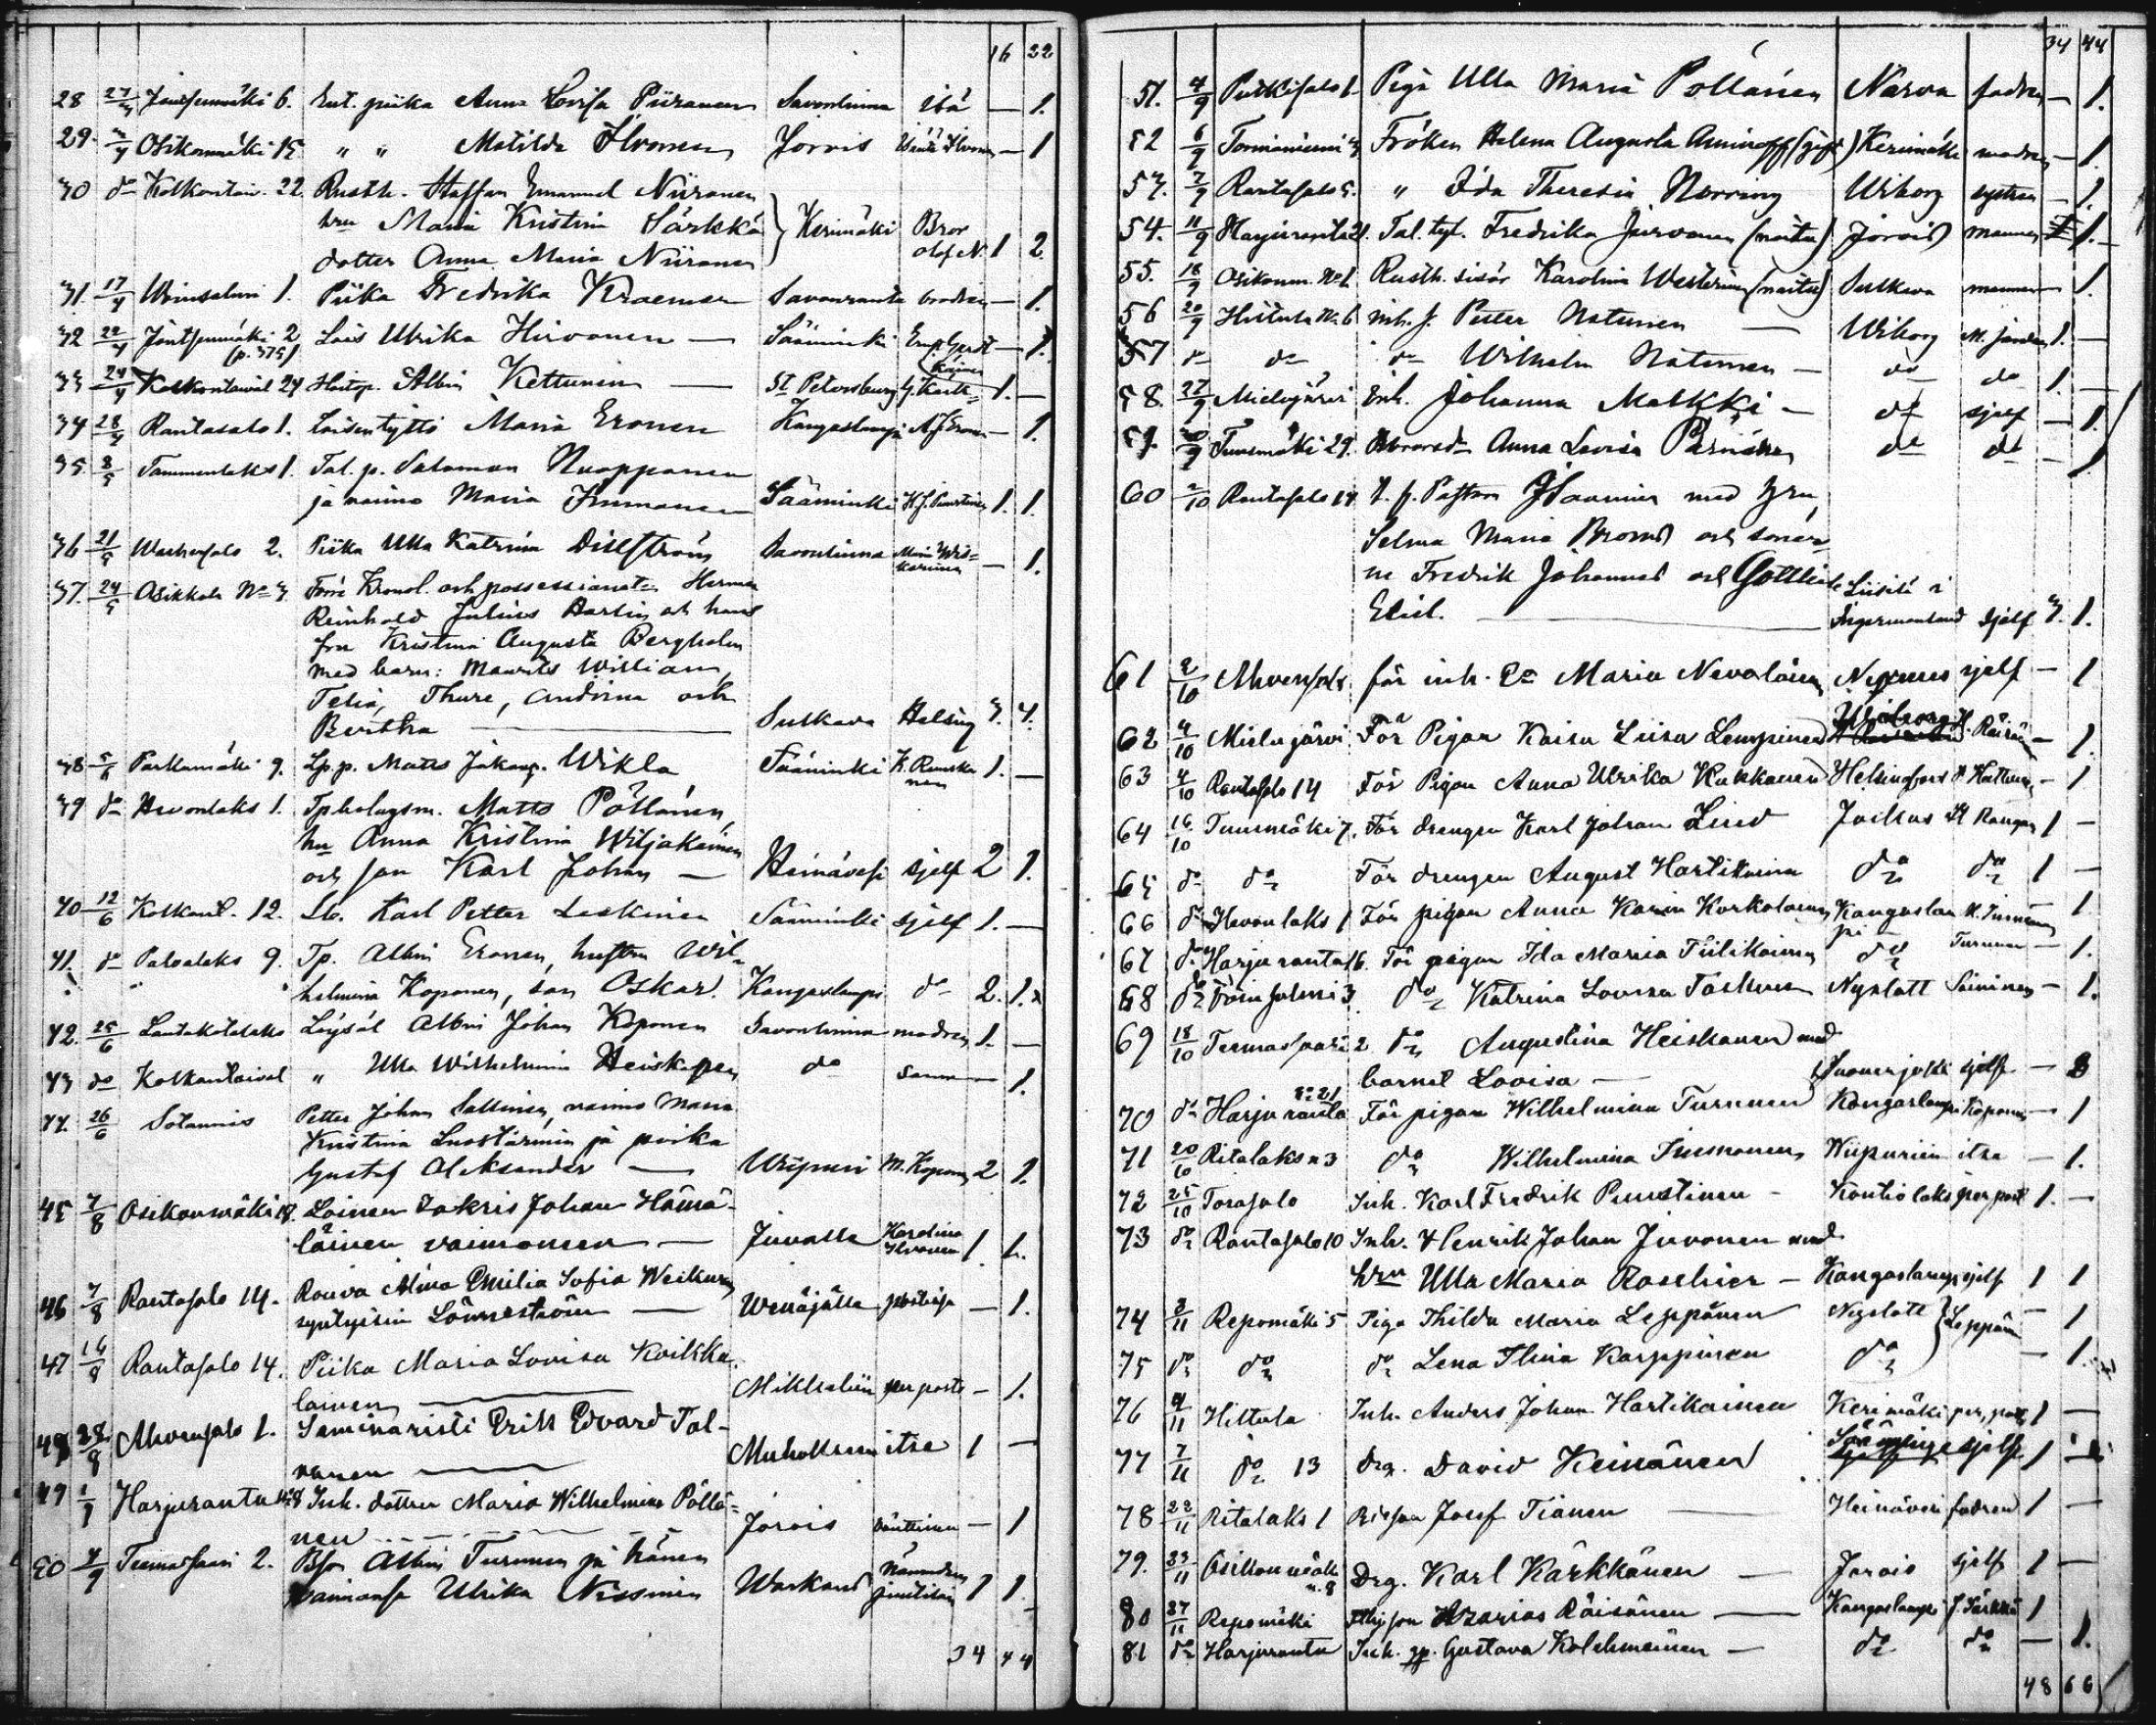 16 22
28 27/3 Jäntsenmäki 6. Ent. piika Anna Lovisa Piiranen Savonlinna isä — 1.
29. Osikonmäki 15 " " Matilda Ilvonen Jorois Ilvonen — 1
30 do Kolkontaiv. 22. Rusth. Staffan Emanuel Niiranen
hru Maria Kristina Särkkä Kerimäki Bror
dotter Anna Maria Niiranen Olof N. 1 2.
31. 17/4 Woinsalmi 1. Piika Fredrika Kraemer Savonranta brodren — 1.
32 22/4 Jäntsenmäki 2 Lois Ulrika Hirvonen — Sääminki — 1.
(p. 375)
33 24/4 Kolkontaival 24 Albin Kettunen — St Petersburg 1. —
34 28/4 Rantasalo 1. Loisentyttö Maria Eronen Kangaslampi A. J. Eronen — 1.
35. 8/5 Tammenlaks 1. Tal. p. Salomon Nuopponen
ja vaimo Maria Immonen Sääminki 1. 1.
36 21/5 2. Piika Ulla Katrina Dillström Savonlinna — 1.
37. 24/5 Osikkala No 3. Förre Kronol. och possessionaten Herman
Reinhold Julius Hartin och hans
fru Kristina Augusta Bergholm
med barn: Maurits William,
Felix, Thure, och
Bertha — Sulkava Helsing 3. 4.
38 5/6 Parkumäki 9. Lp. p. Matts Jakob p. Wikla Sääminki 1. —
39 do Hevonlaks 1. Tpholagsm. Matts Pöllänen,
hu Anna Kristina Wiljakainen
och son Karl Johan — Heinävesi sjelf 2 1.
40 12/6 Kolkont. 12. Lb. Karl Petter Leskinen Sääminki sjelf 1. —
41. do 9. Tp. Albin Eronen, hustru Wil-
helmina Koponen, son Oskar. Kangaslampi do 2. 1.
42. 25/6 Lautakotalaks Löysäl Albin Johan Koponen Savonlinna modren 1. —
43 do Kolkontaival " Ulla Wilhelmina Heiskanen do — 1.
44. 26/6 Petter Johan Sallinen, vaimo Maria
Kristina ja poika
Gustaf Aleksander — Wiipuri M. Koponen 2 1.
45 7/8 Osikonmäki 18. Loinen Zakris Johan Hämä-
läinen vaimoneen — Juvalle Karolina Ilvonen 1 1.
46 7/8 Rantasalo 14. Rouva Alina Emilia Sofia Weikun
syntyisin Lönneström — postissa — 1.
47 16/8 Rantasalo 14. Piika Maria Lovisa Koikka-
lainen — Mikkeliin per posti — 1.
48 28/8 Ahvensalo 1. Seminaristi Erik Edvard Tol-
vanen — itse 1 —
49 1/9 Harjuranta Inh. dottren Maria Wilhelmina Pöllä-
nen — Jorois — 1
50 4/9 Teemassaari 2. Albin Turunen ja hänen
vaimonsa Ulrika Nissinen Warkaus 1 1.
34 44
34 44
51. 4/9 Putkisalo 1 Piga Ulla Maria Pöllänen Narva fadren — 1.
52 6/9 Torminiemi Fröken Helena Augusta Aminoff (gift) Kerimäki modren — 1.
53. 7/9 Rantasalo 5. " Ida Theresia Norring Wiborg systren — 1.
54. 11/9 Harjuranta 21. Tal. tyt. Fredrika Juvonen (naitu) Jorois mannen 1. —
55. 18/9 Osikonm. No 1. Rusth. sisar Karolina (naitu) Sulkava mannen — 1.
56 20/9 Hiltula No 6 inh. s. Petter Natunen — Wiborg 1. —
57 do do do Wilhelm Natunen — do do 1. —
58. 27/9 Mielojärvi Enh. Johanna Matkki — do sjelf — 1.
59. Tuusmäki 29. Anna Lovisa Pärnänen do do — 1
60 2/10 Rantasalo 14 t. f. Pastorn J Saarinen med hru,
Selma Maria Broms och söner-
ne Fredrik Johannes och Gottlieb
Elis. — Liisilä i
Ingermanland sjelf 3. 1.
61 2/10 Ahvensalo för inh. Maria Nevalainen sjelf — 1
62 4/10 Mielujärvi För Pigan Kaisa Liisa Lempinen Wiborg Räisänen — 1.
63 4/10 Rantasalo 14 För Pigan Anna Ulrika Kukkonen Helsingfors — 1
64 16/10 Tuusmäki 7. För drengen Karl Johan Lind Joikas 1 —
65 do do För drengen August Hartikainen do do 1 —
66 do Hevonlaks 1 För pigan Anna Karin Korkolainen Kangaslampi 1
67 do Harjuranta 16. För pigan Ida Maria Tiilikainen do Turunen — 1.
68 do 3. do Katrina Lovisa Nyslott Saininen — 1.
69 18/10 Teemassaari 2. do Augustina Heiskanen med
barnet Lovisa — Suonenjoki sjelf — 2
70 do Harjuranta No 21 För pigan Wilhelmina Turunen Kangaslampi Koponen — 1
71 20/10 Ritalaks n 3 do Wilhelmina Immonen Wiipuriin itse — 1.
72 25/10 Torasalo Inh. Karl Fredrik Puustinen — Kontiolaks per post 1. —
73 do Rantasalo 10 Inh. Henrik Johan Juvonen med
hru Ulla Maria Roschier — Kangaslampi sjelf 1 1
74 2/11 Repomäki 5 Piga Thilda Maria Leppänen Nyslott Leppänen — 1
75 do do do Lena Stina Karppinen do — 1.
76 4/11 Hiltula Inh. Anders Johan Hartikainen Kerimäki per post 1 —
77 7/11 do 13 Drg. David Keinänen Sääminge sjelf 1 —
78 22/11 Ritalaks 1 Josef Tiänen — Heinävesi fadren 1 —
79. 23/11 Osikonmäki n. 8 Drg. Karl Kärkkänen — Jorois sjelf 1 —
80 27/11 Repomäki Azarias Räisänen — Kangaslampi J. Särkkä 1
81 do Harjuranta Inh. Gustava Kolehmainen — do do — 1.
48 66